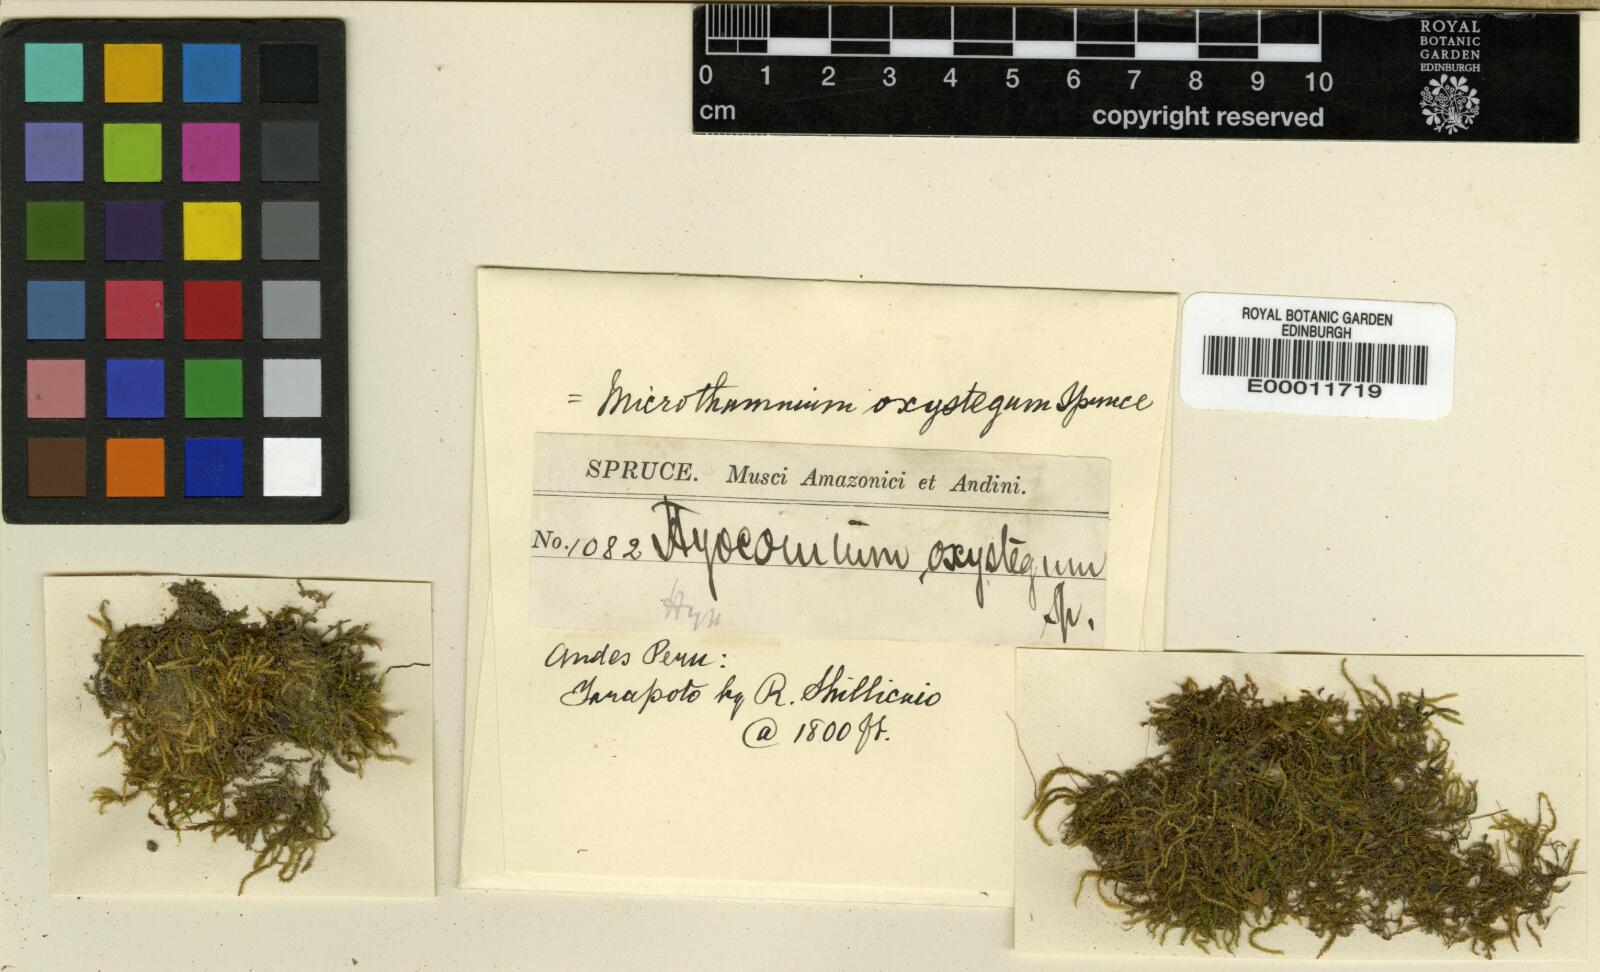 ROYAL
BOTANIC
GARDEN
EDINBURGH
0 1 2 3 4 5 6 7 8 9 10
cm
copyright reserved
ROYAL BOTANIC GARDEN
EDINBURGH
E00011719
= Microthamnium oxystegum Spruce
SPRUCE. Musci Amazonici et Andini.
No. 1082 Hyocomium oxystegum
Sp.
Hyp
Andes Peru:
Tarapoto by R. Shillicaio
@ 1800 ft.